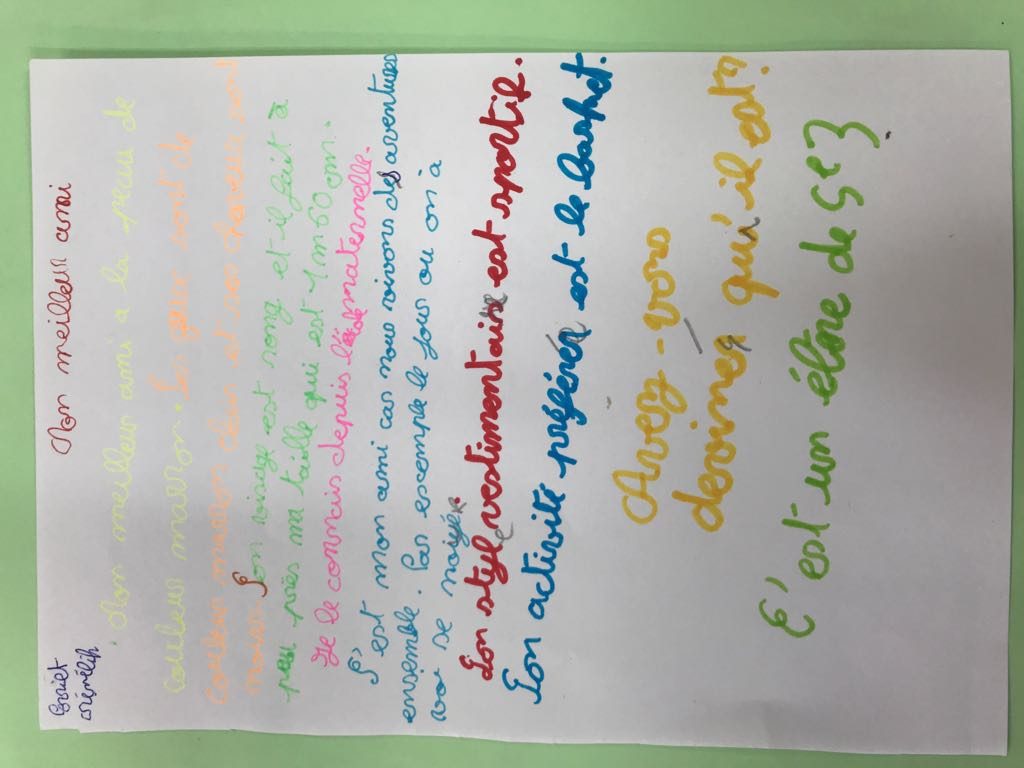 Mon meilleur ami
Mon meilleur ami a la peau de
couleur marron. Ses yeux sont de
couleur marron clair et ses cheveux sont
noirs. Son visage est rong et il fait à
peu près ma taille qui est 1m60 cm.
Je le connais depuis l'école maternelle.
C'est mon ami car nous vivons des aventures
ensemble. Par escemple le jour ou on à
se noyé.
Son style vestimentaire est sportif.
Son activité préférér est le basket.
Avez-vous
deviner qui il est?
C'est un élève de 5e3